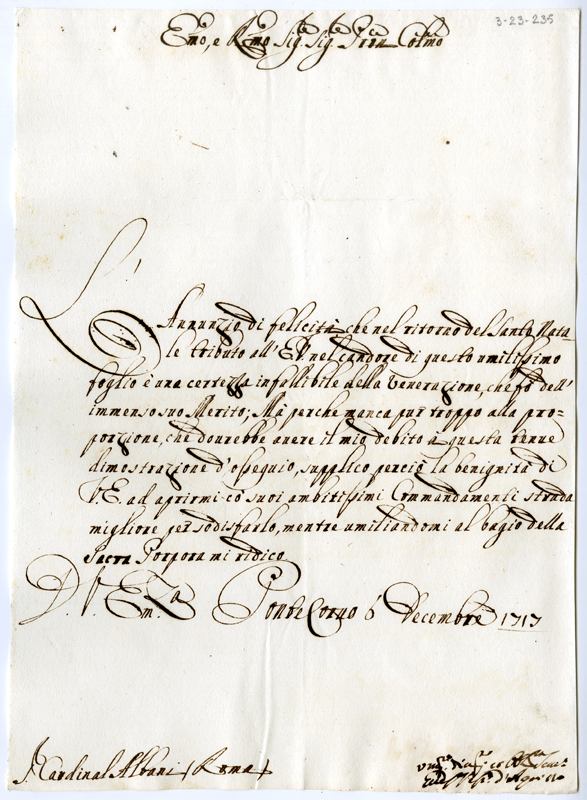 3-23-235
Emo, e Rmo Sig.r Sig.r Pron Colmo
L'Annunzio di felicità, che nel ritorno del Santo Nata-
le tributo all'E.V. nel candore di questo umilissimo
foglio è una certezza infallibile della Venerazione, che fò dell'
immenso suo Merito; Mà perche manca pur troppo alla pro=
porzione, che dourebbe auere il mio debito à questa tenue
dimostrazione d'ossequio, supplico perciò la benignità di
V.E. ad aprirmi co' suoi ambitissimi Commandamenti strada
migliore per sodisfarlo, mentre umiliandomi al bagio della
Sacra Porpora mi ridico
D. V. Em.za Ponte Coruo 6 Decembre 1717
S. Cardinal Albani (Roma)